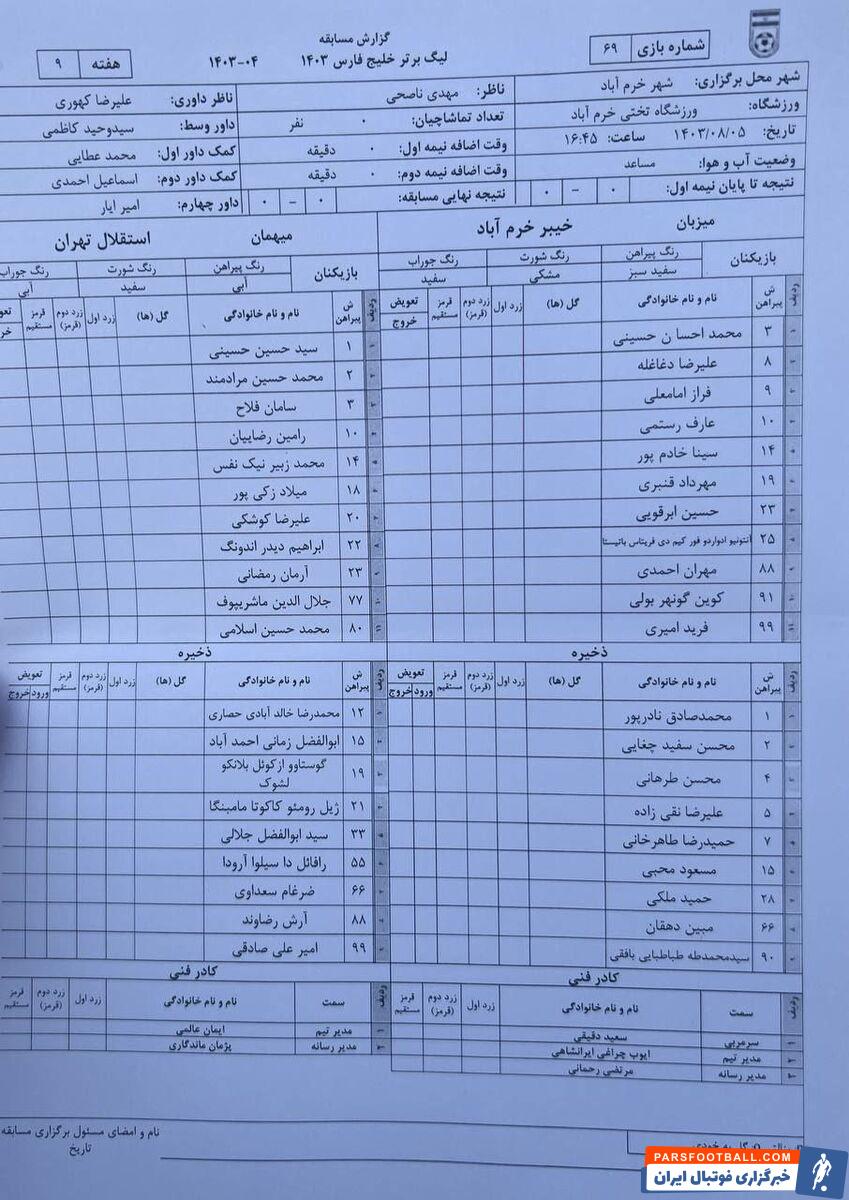 گزارش مسابقه
شماره بازی ۶۹
لیگ برتر خلیج فارس ۱۴۰۳ ۰۴-۱۴۰۳
هفته ۹
شهر محل برگزاری: شهر خرم آباد
ورزشگاه: ورزشگاه تختی خرم آباد
تاریخ: ۱۴۰۳/۰۸/۰۵ ساعت: ۱۶:۴۵
وضعیت آب و هوا: مساعد
نتیجه تا پایان نیمه اول: ۰ - ۰
ناظر: مهدی ناصحی
تعداد تماشاچیان: ۰ نفر
وقت اضافه نیمه اول: ۰ دقیقه
وقت اضافه نیمه دوم: ۰ دقیقه
نتیجه نهایی مسابقه: ۰ - ۰
ناظر داوری: علیرضا کهوری
داور وسط: سیدوحید کاظمی
کمک داور اول: محمد عطایی
کمک داور دوم: اسماعیل احمدی
داور چهارم: امیر ایار
میزبان خیبر خرم آباد
بازیکنان
رنگ پیراهن رنگ شورت رنگ جوراب
سفید سبز مشکی سفید
ردیف ش پیراهن نام و نام خانوادگی گل (ها) زرد اول زرد دوم (قرمز) قرمز مستقیم تعویض خروج
۳ محمد احسا ن حسینی
۸ علیرضا دغاغله
۹ فراز امامعلی
۱۰ عارف رستمی
۱۴ سینا خادم پور
۱۹ مهرداد قنبری
۲۳ حسین ابرقویی
۲۵ آنتونیو ادواردو فور کیم دی فریتاس باتیستا
۸۸ مهران احمدی
۹۱ کوین گونهر بولی
۹۹ فرید امیری
ذخیره
ردیف ش پیراهن نام و نام خانوادگی گل (ها) زرد اول زرد دوم (قرمز) قرمز مستقیم تعویض ورود خروج
۱ محمدصادق نادرپور
۲ محسن سفید چغایی
۴ محسن طرهانی
۵ علیرضا نقی زاده
۷ حمیدرضا طاهرخانی
۱۵ مسعود محبی
۲۸ حمید ملکی
۶۶ مبین دهقان
۹۰ سیدمحمدطه طباطبایی بافقی
کادر فنی
ردیف سمت نام و نام خانوادگی زرد اول زرد دوم (قرمز) قرمز مستقیم
۱ سرمربی سعید دقیقی
۲ مدیر تیم ایوب چراغی ایرانشاهی
۳ مدیر رسانه مرتضی رحمانی
میهمان استقلال تهران
بازیکنان
رنگ پیراهن رنگ شورت رنگ جوراب
آبی سفید آبی
ردیف ش پیراهن نام و نام خانوادگی گل (ها) زرد اول زرد دوم (قرمز) قرمز مستقیم
۱ سید حسین حسینی
۲ محمد حسین مرادمند
۳ سامان فلاح
۱۰ رامین رضاییان
۱۴ محمد زبیر نیک نفس
۱۸ میلاد زکی پور
۲۰ علیرضا کوشکی
۲۲ ابراهیم دیدر اندونگ
۲۳ آرمان رمضانی
۷۷ جلال الدین ماشریپوف
۸۰ محمد حسین اسلامی
ذخیره
ردیف ش پیراهن نام و نام خانوادگی گل (ها) زرد اول زرد دوم (قرمز) قرمز مستقیم تعویض ورود خروج
۱۲ محمدرضا خالد آبادی حصاری
۱۵ ابوالفضل زمانی احمد آباد
۱۹ گوستاوو ازکوئل بلانکو
لشوک
۲۱ ژیل رومئو کاکوتا مامبنگا
۳۳ سید ابوالفضل جلالی
۵۵ رافائل دا سیلوا آرودا
۶۶ ضرغام سعداوی
۸۸ آرش رضاوند
۹۹ امیر علی صادقی
کادر فنی
ردیف سمت نام و نام خانوادگی زرد اول زرد دوم (قرمز) قرمز مستقیم
۱ مدیر تیم ایمان عالمی
۲ مدیر رسانه پژمان ماندگاری
نام و امضای مسئول برگزاری مسابقه
تاریخ
PARSFOOTBALL.COM
خبرگزاری فوتبال ایران